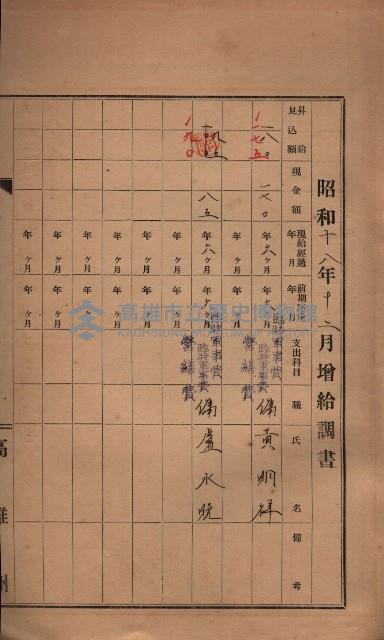 昭和十八年十二月增給調書
昇給見込額
現金額
現給經過年月
前期
支出科目
職氏名
備考
一八〇
一七五
一七〇
年六ヶ月
臨時軍事費
營繕費
傭 黃明祥
年 ヶ月
年 ヶ月
一九〇
八五
年六ヶ月
臨時軍事費
營繕費
傭 盧水晚
年 ヶ月
年 ヶ月
年 ヶ月
年 ヶ月
年 ヶ月
年 ヶ月
年 ヶ月
年 ヶ月
年 ヶ月
年 ヶ月
高雄州
高雄市立歷史博物館